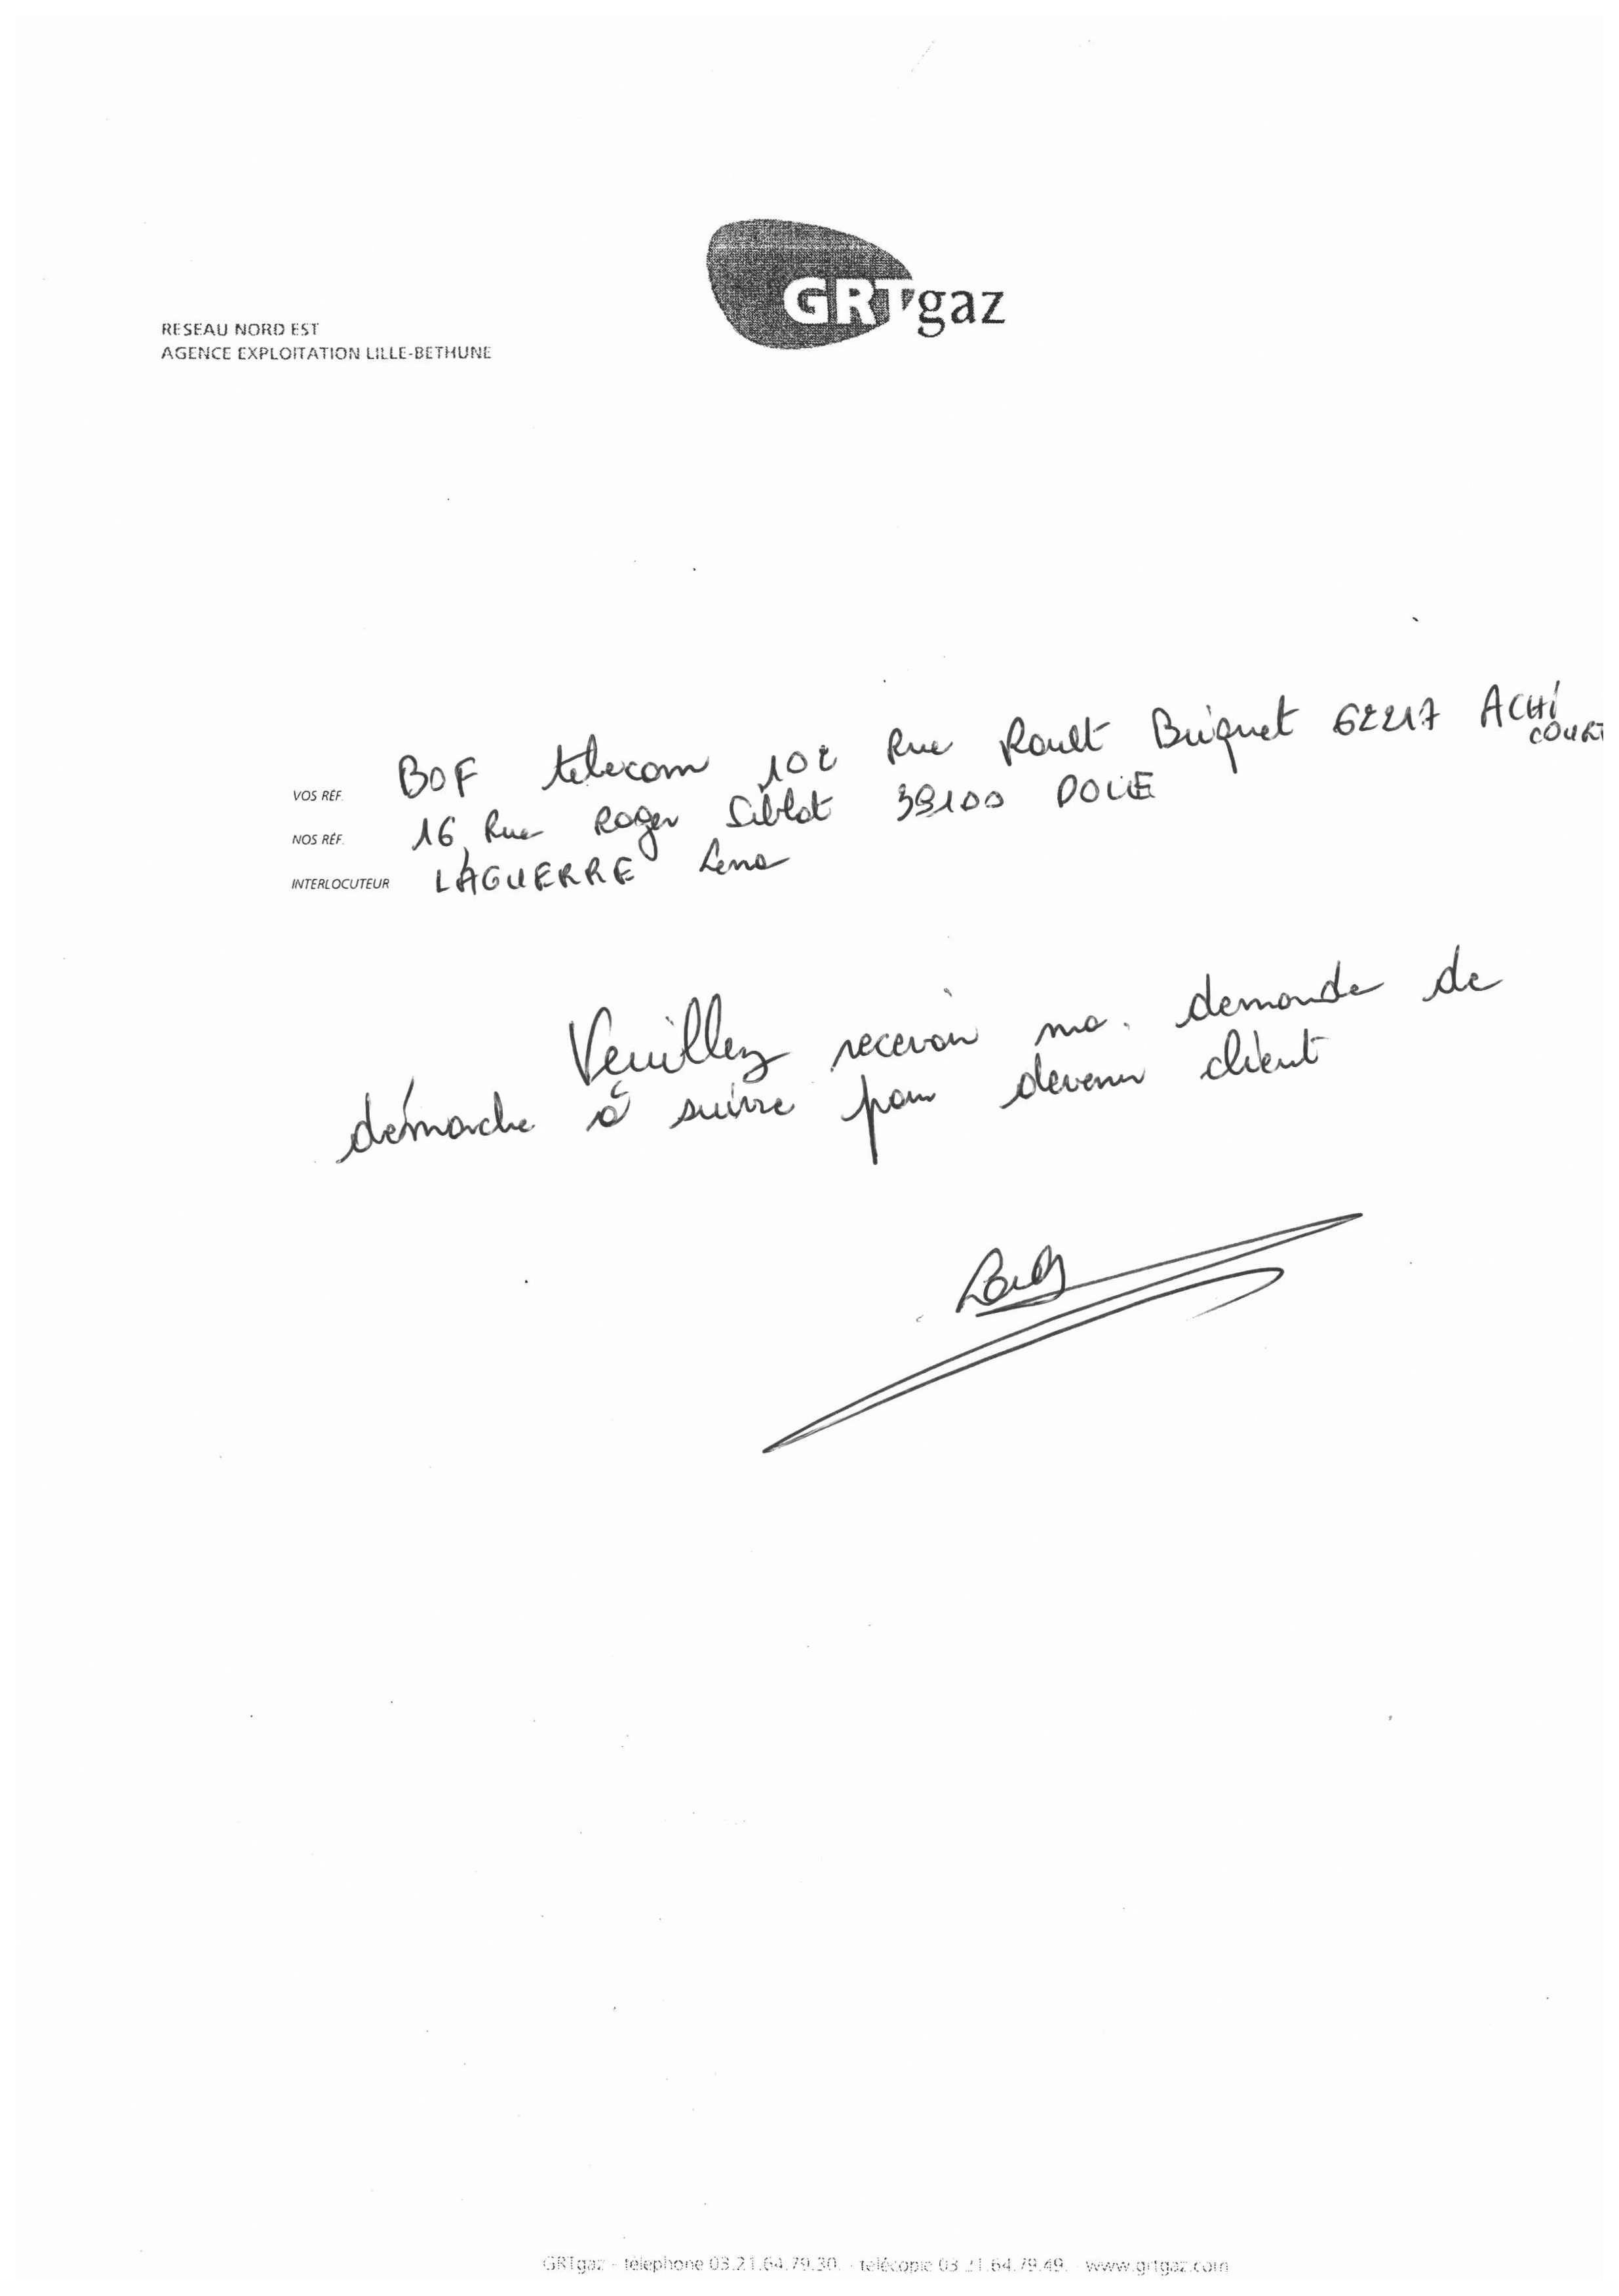 GRTgaz
RESEAU NORD EST
AGENCE EXPLOITATION LILLE-BETHUNE
VOS RÉF. BOF telecom 102 Rue Roult Briquet 62217 ACHICOURT
NOS RÉF. 16 Rue Roger Siblot 39100 DOLE
INTERLOCUTEUR LAGUERRE Lena
Veuillez recevoir ma demande de
démarche à suivre pour devenir client
GRTgaz - téléphone 03.21.64.79.30. - télécopie 03.21.64.79.49. www.grtgaz.com